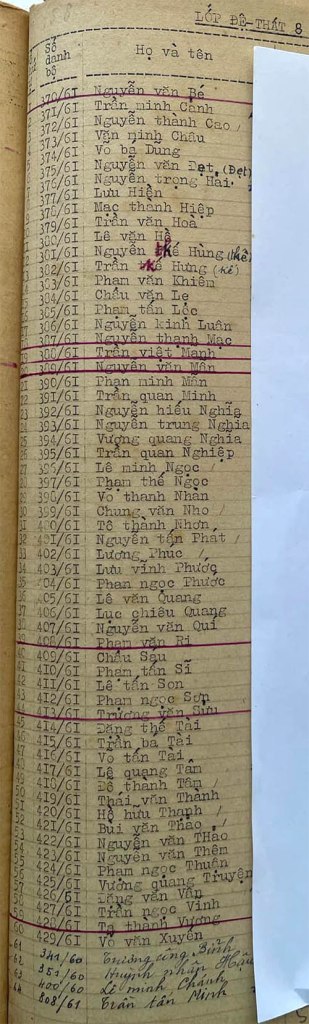 LỚP ĐỆ-THẤT 8
Số danh bộ Họ và tên
370/61 Nguyễn văn Bé
371/61 Trần minh Cảnh
372/61 Nguyễn thành Cao
373/61 Văn minh Châu
374/61 Võ bá Dũng
375/61 Nguyễn văn Đẹt (Đẹt)
376/61 Nguyễn trọng Hải
377/61 Lưu Hiền
378/61 Mạc thành Hiệp
379/61 Trần văn Hoà
Lê văn Hề
Nguyễn thế Hùng (thế)
302/61 Trần kế Hưng (kế)
303/61 Phạm văn Khiêm
304/61 Châu văn Lẹ
305/61 Phạm tấn Lộc
306/61 Nguyễn kinh Luân
307/61 Nguyễn thành Mạc
300/61 Trần việt Mạnh
309/61 Nguyễn văn Mẫn
390/61 Phan minh Mẫn
391/61 Trần quan Minh
392/61 Nguyễn hiếu Nghĩa
393/61 Nguyễn trung Nghĩa
394/61 Vương quang Nghĩa
395/61 Trần quan Nghiệp
396/61 Lê minh Ngọc
397/61 Phạm thế Ngọc
398/61 Võ thanh Nhàn
399/61 Chung văn Nho
400/61 Tô thành Nhơn
401/61 Nguyễn tấn Phát
402/61 Lương Phuc
403/61 Lưu vĩnh Phước
404/61 Phan ngọc Phước
405/61 Lê văn Quang
406/61 Lục chiêu Quang
407/61 Nguyễn văn Quí
408/61 Phạm văn Ri
409/61 Châu Sáu
410/61 Phạm tấn Sĩ
411/61 Lê tấn Sơn
412/61 Phạm ngọc Sơn
413/61 Trương văn Sửu
414/61 Đặng thế Tài
415/61 Trần bá Tài
416/61 Võ tấn Tài
417/61 Lê quang Tâm
418/61 Đỗ thành Tâm
419/61 Thái văn Thành
420/61 Hồ hưu Thanh
421/61 Bùi văn Thảo
422/61 Nguyễn văn THảo
423/61 Nguyễn văn Thêm
424/61 Phạm ngọc Thuân
425/61 Vương quang Truyện
426/61 Đặng văn Vân
427/61 Trần ngọc Vinh
Tạ thanh Vương
429/61 Võ văn Xuyến
341/60 Trương công Bình
357/60 Huỳnh nhập
400/60 Lê minh Chánh
508/61 Trần tấn Minh